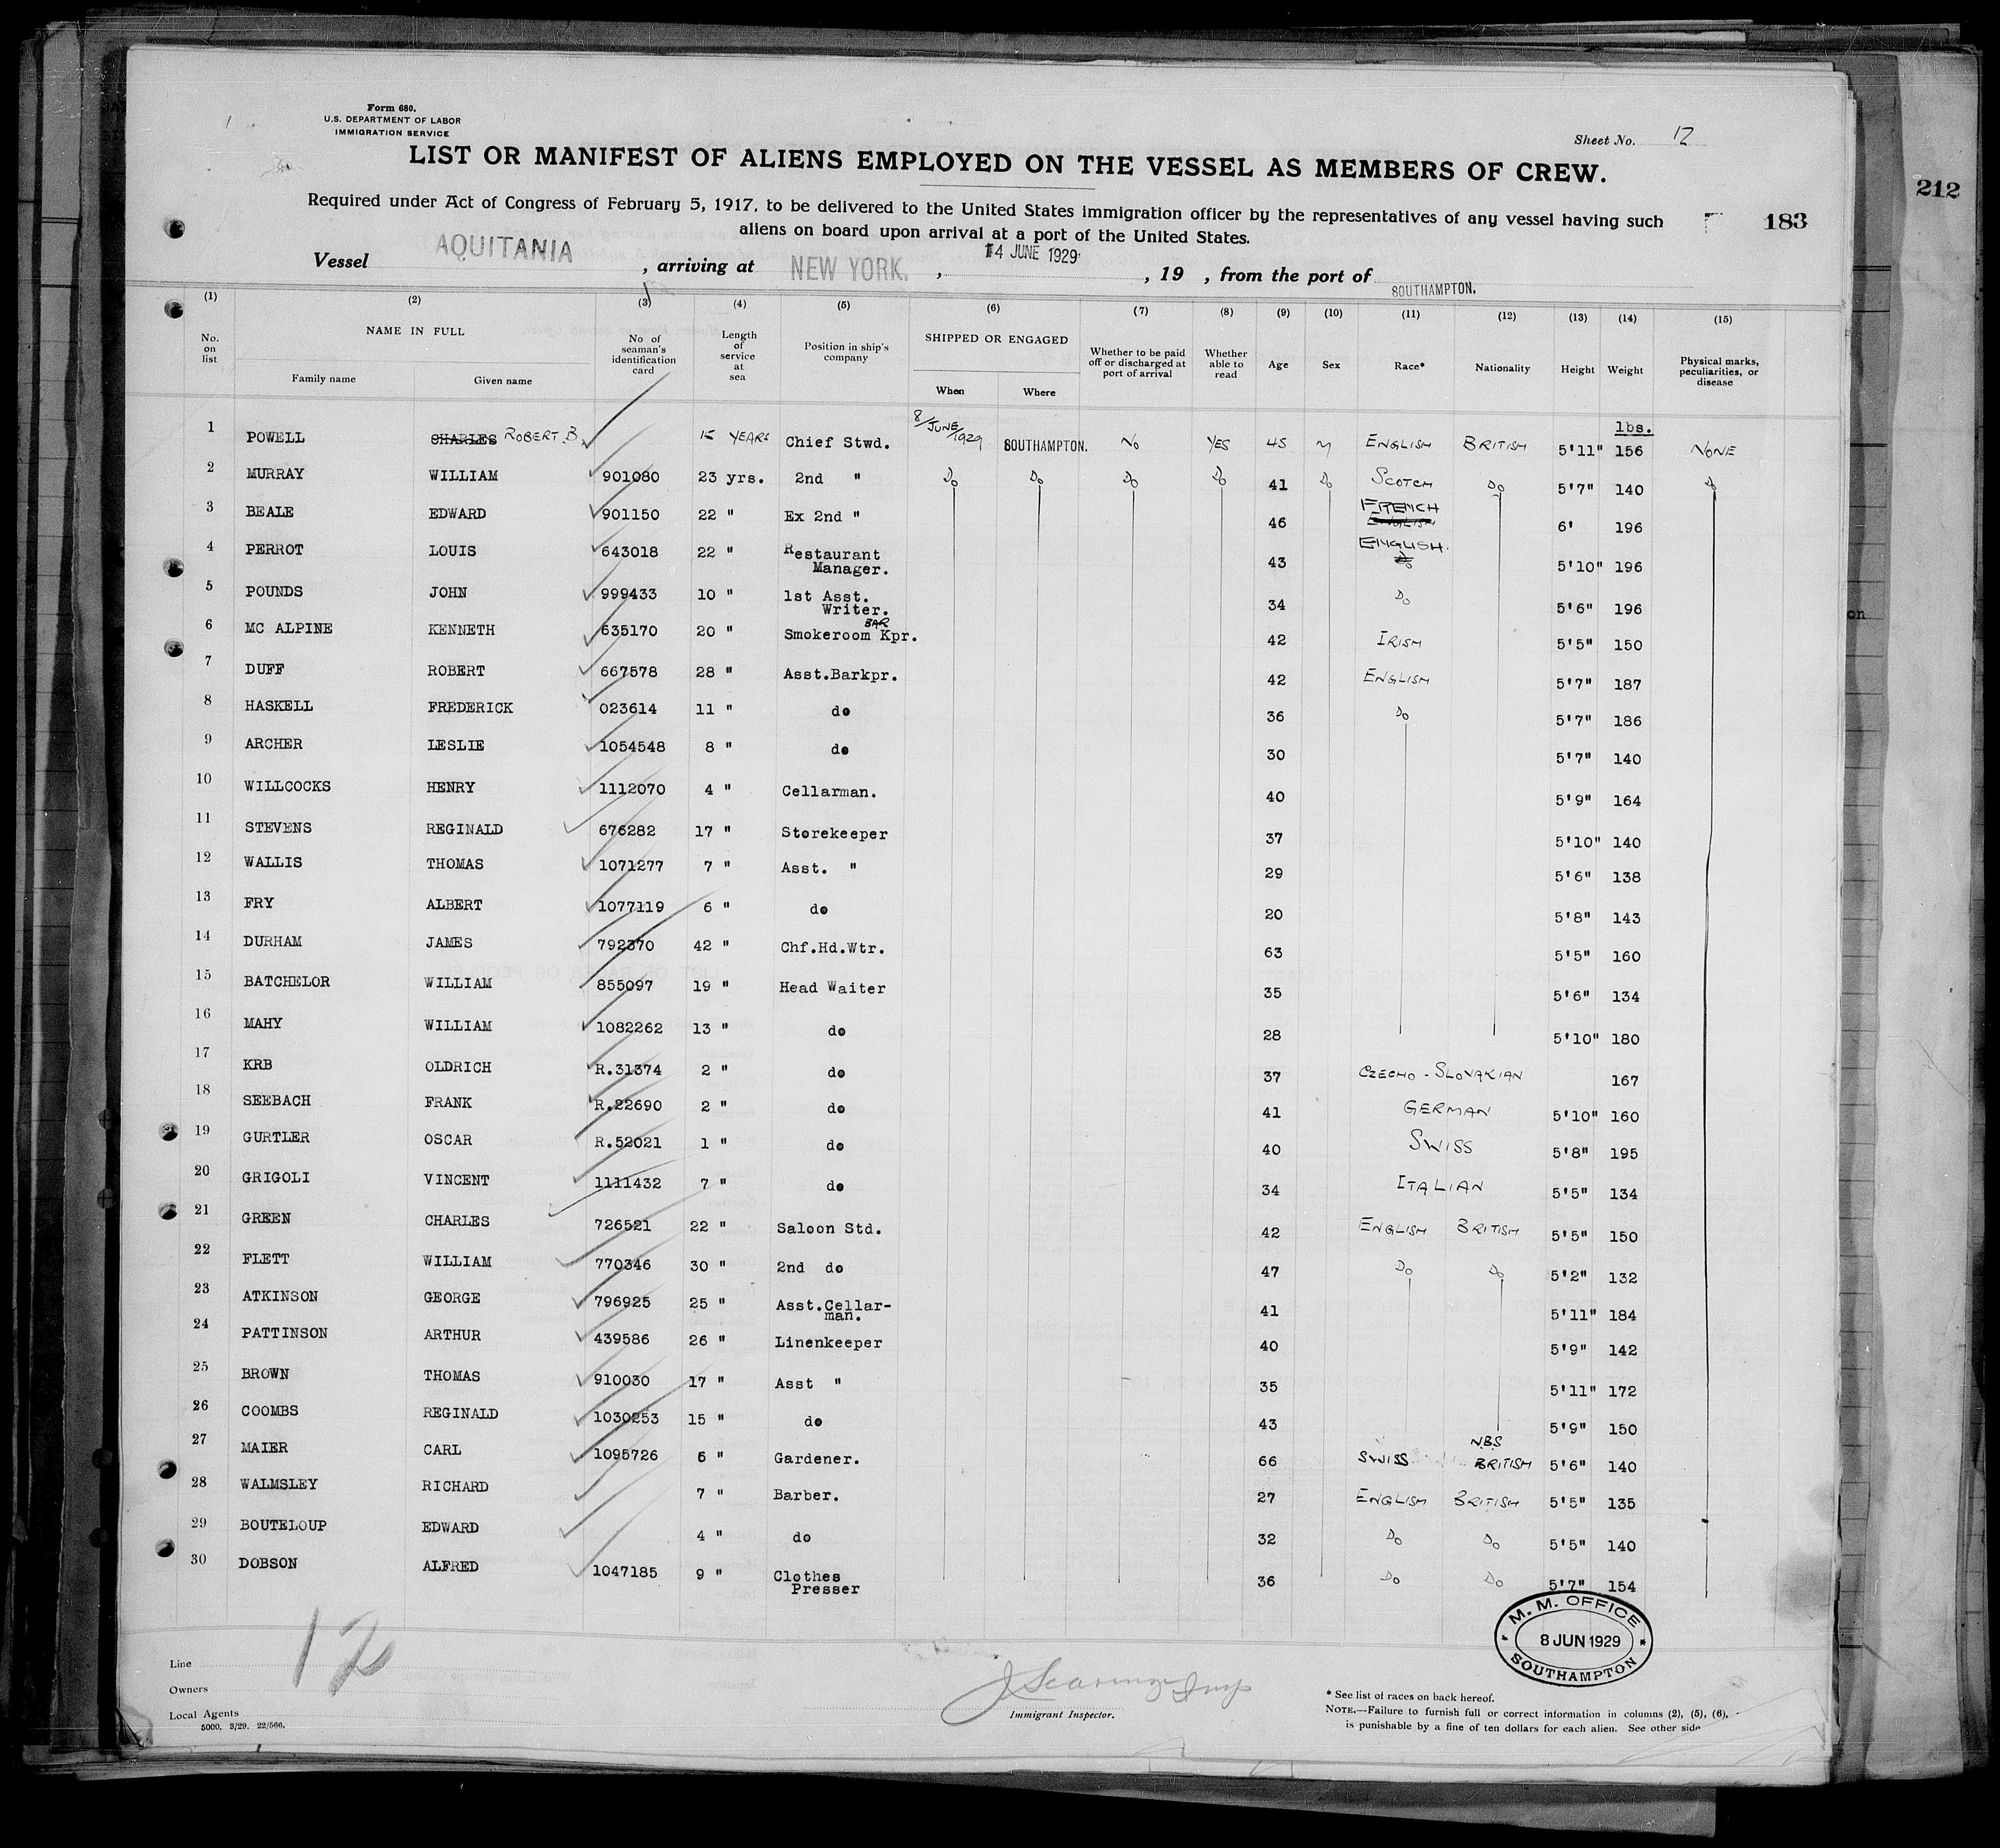 Form 680.
U.S. DEPARTMENT OF LABOR
IMMIGRATION SERVICE
Sheet No. 12
LIST OR MANIFEST OF ALIENS EMPLOYED ON THE VESSEL AS MEMBERS OF CREW.
212
Required under Act of Congress of February 5, 1917, to be delivered to the United States immigration officer by the representatives of any vessel having such
183
aliens on board upon arrival at a port of the United States.
Vessel AQUITANIA, arriving at NEW YORK., 14 JUNE 1929, 19 , from the port of SOUTHAMPTON.
(1) (2) (3) (4) (5) (6) (7) (8) (9) (10) (11) (12) (13) (14) (15)
No. on list NAME IN FULL Family name Given name No of seaman's identification card Length of service at sea Position in ship's company SHIPPED OR ENGAGED When Where Whether to be paid off or discharged at port of arrival Whether able to read Age Sex Race* Nationality Height Weight Physical marks, peculiarities, or disease
lbs.
1 POWELL CHARLES ROBERT B. 15 YEARS Chief Stwd. 8/JUNE/1929 SOUTHAMPTON. NO YES 45 M ENGLISH BRITISH 5'11" 156 NONE
2 MURRAY WILLIAM 901080 23 yrs. 2nd " Do Do Do Do 41 Do SCOTCH Do 5'7" 140 Do
3 BEALE EDWARD 901150 22 " Ex 2nd " 46 FRENCH ENGLISH 6' 196
4 PERROT LOUIS 643018 22 " Restaurant Manager. 43 ENGLISH. Do 5'10" 196
5 POUNDS JOHN 999433 10 " 1st Asst. Writer. 34 Do 5'6" 196
6 MC ALPINE KENNETH 635170 20 " Smokeroom BAR Kpr. 42 IRISH 5'5" 150
7 DUFF ROBERT 667578 28 " Asst.Barkpr. 42 ENGLISH 5'7" 187
8 HASKELL FREDERICK 023614 11 " do 36 Do 5'7" 186
9 ARCHER LESLIE 1054548 8 " do 30 5'7" 140
10 WILLCOCKS HENRY 1112070 4 " Cellarman. 40 5'9" 164
11 STEVENS REGINALD 676282 17 " Storekeeper 37 5'10" 140
12 WALLIS THOMAS 1071277 7 " Asst. " 29 5'6" 138
13 FRY ALBERT 1077119 6 " do 20 5'8" 143
14 DURHAM JAMES 792370 42 " Chf.Hd.Wtr. 63 5'5" 160
15 BATCHELOR WILLIAM 855097 19 " Head Waiter 35 5'6" 134
16 MAHY WILLIAM 1082262 13 " do 28 5'10" 180
17 KRB OLDRICH R.31374 2 " do 37 CZECHO-SLOVAKIAN 167
18 SEEBACH FRANK R.22690 2 " do 41 GERMAN 5'10" 160
19 GURTLER OSCAR R.52021 1 " do 40 SWISS 5'8" 195
20 GRIGOLI VINCENT 1111432 7 " do 34 ITALIAN 5'5" 134
21 GREEN CHARLES 726521 22 " Saloon Std. 42 ENGLISH BRITISH 5'5" 150
22 FLETT WILLIAM 770346 30 " 2nd do 47 Do Do 5'2" 132
23 ATKINSON GEORGE 796925 25 " Asst.Cellar- man. 41 5'11" 184
24 PATTINSON ARTHUR 439586 26 " Linenkeeper 40 5'9" 142
25 BROWN THOMAS 910030 17 " Asst " 35 5'11" 172
26 COOMBS REGINALD 1030253 15 " do 43 5'9" 150
27 MAIER CARL 1095726 6 " Gardener. 66 SWISS NBS BRITISH 5'6" 140
28 WALMSLEY RICHARD 7 " Barber. 27 ENGLISH BRITISH 5'5" 135
29 BOUTELOUP EDWARD 4 " do 32 Do Do 5'5" 140
30 DOBSON ALFRED 1047185 9 " Clothes Presser 36 Do Do 5'7" 154
M. M. OFFICE
8 JUN 1929
SOUTHAMPTON
12
Line
Owners
Local Agents
5000. 3/29. 22/566.
Immigrant Inspector.
* See list of races on back hereof.
NOTE.—Failure to furnish full or correct information in columns (2), (5), (6),
is punishable by a fine of ten dollars for each alien. See other side